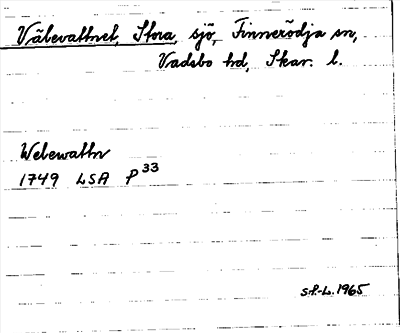 Välevattnet, Stora, sjö, Finnerödja sn,
Vadsbo hd, Skar. l.
Welewattn
1749 LSA P 33
S.F.-L. 1965